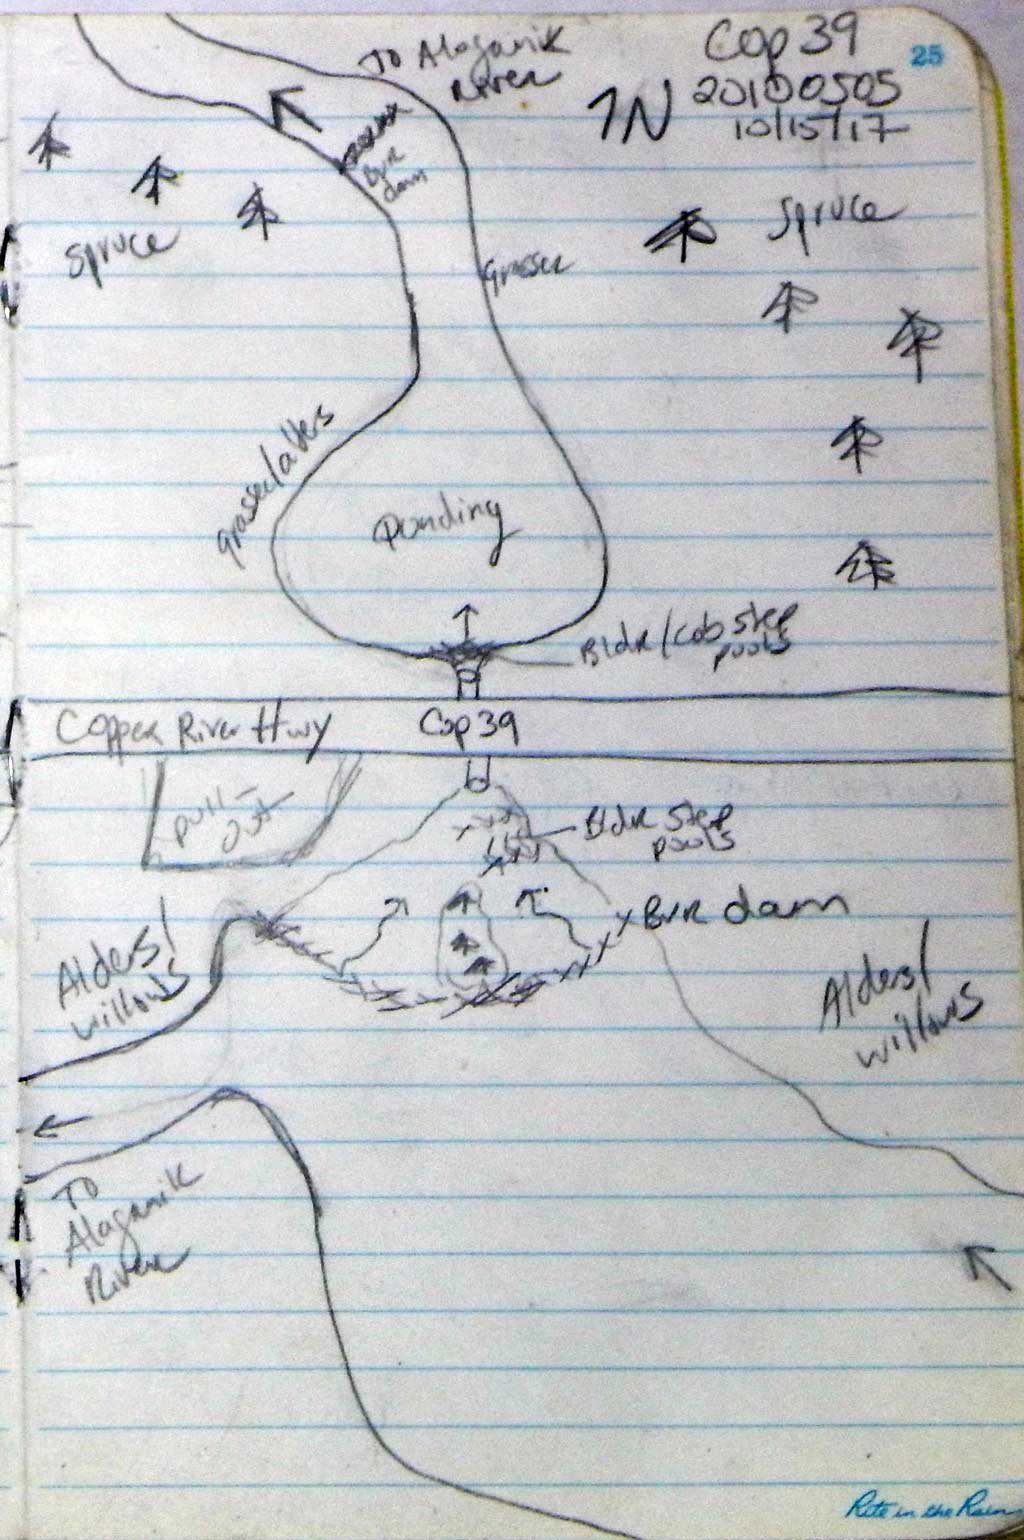 Cop 39
25
20100505
10/15/17
N
To Alaganik
River
Bvr
dam
Spruce
Spruce
Grasses
Grasses/alders
Ponding
Bldr/Cob step
pools
Copper River Hwy
Cop 39
pull-
out
Bldr step
pools
Bvr dam
Alders/
willows
Alders/
willows
To
Alaganik
River
Rite in the Rain